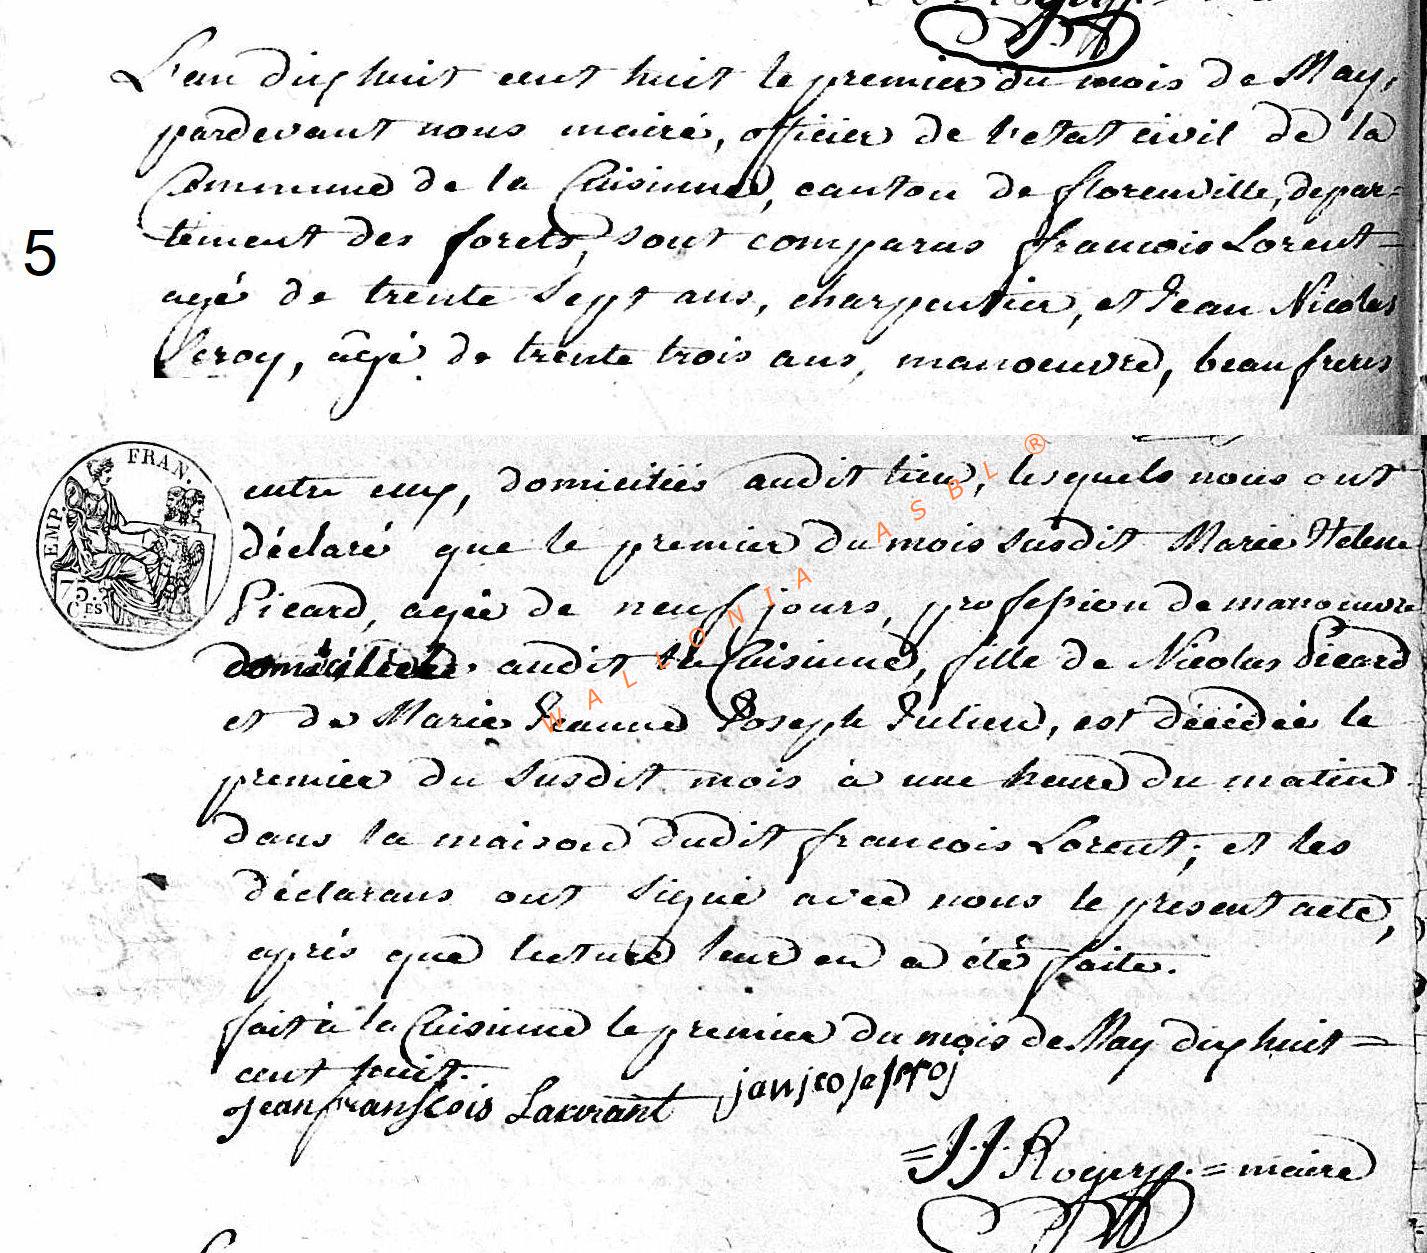 L'an dix huit cent huit le premier du mois de May,
pardevant nous maire, officier de l'etat civil de la
Commune de la Cuisinne, canton de florenville, depar=
tement des forets, sont comparus francois Lorent=
agé de trente Sept ans, charpentier, et Jean Nicolas
Leroy, âgé de trente trois ans, manoeuvre, beau freres
5
FRAN.
EMP.
75.
CES
entre eux, domiciliés audit lieu, lesquels nous ont
déclaré que le premier du mois susdit Marie Helene
Picard, agée de neuf jours, profession de manoeuvre
domiciliée audit la Cuisinne, fille de Nicolas Picard
et de Marie Jeanne Joseph Julien, est décédée le
premier du susdit mois à une heure du matin
dans la maison dudit francois Lorent; et les
déclarans ont signé avec nous le present acte,
après que lecture leur en a été faite.
fait à la Cuisinne le premier du mois de May dix huit=
cent huit.
jean franscois Laurant
=JJ Rogery.= maire
WALLONIA ASBL ®